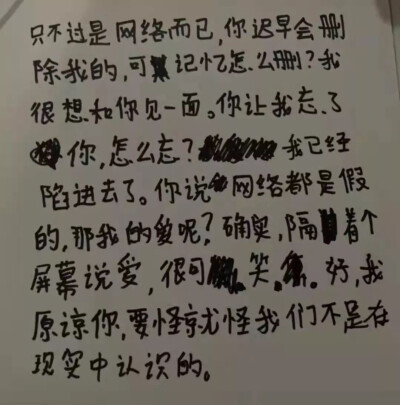 只不过是网络而已,你迟早会删
除我的,可记忆怎么删?我
很想和你见一面。你让我忘了
你,怎么忘?我已经
陷进去了。你说网络都是假
的,那我的爱呢?确实,隔着个
屏幕说爱,很可笑。好,我
原谅你,要怪就怪我们不是在
现实中认识的。